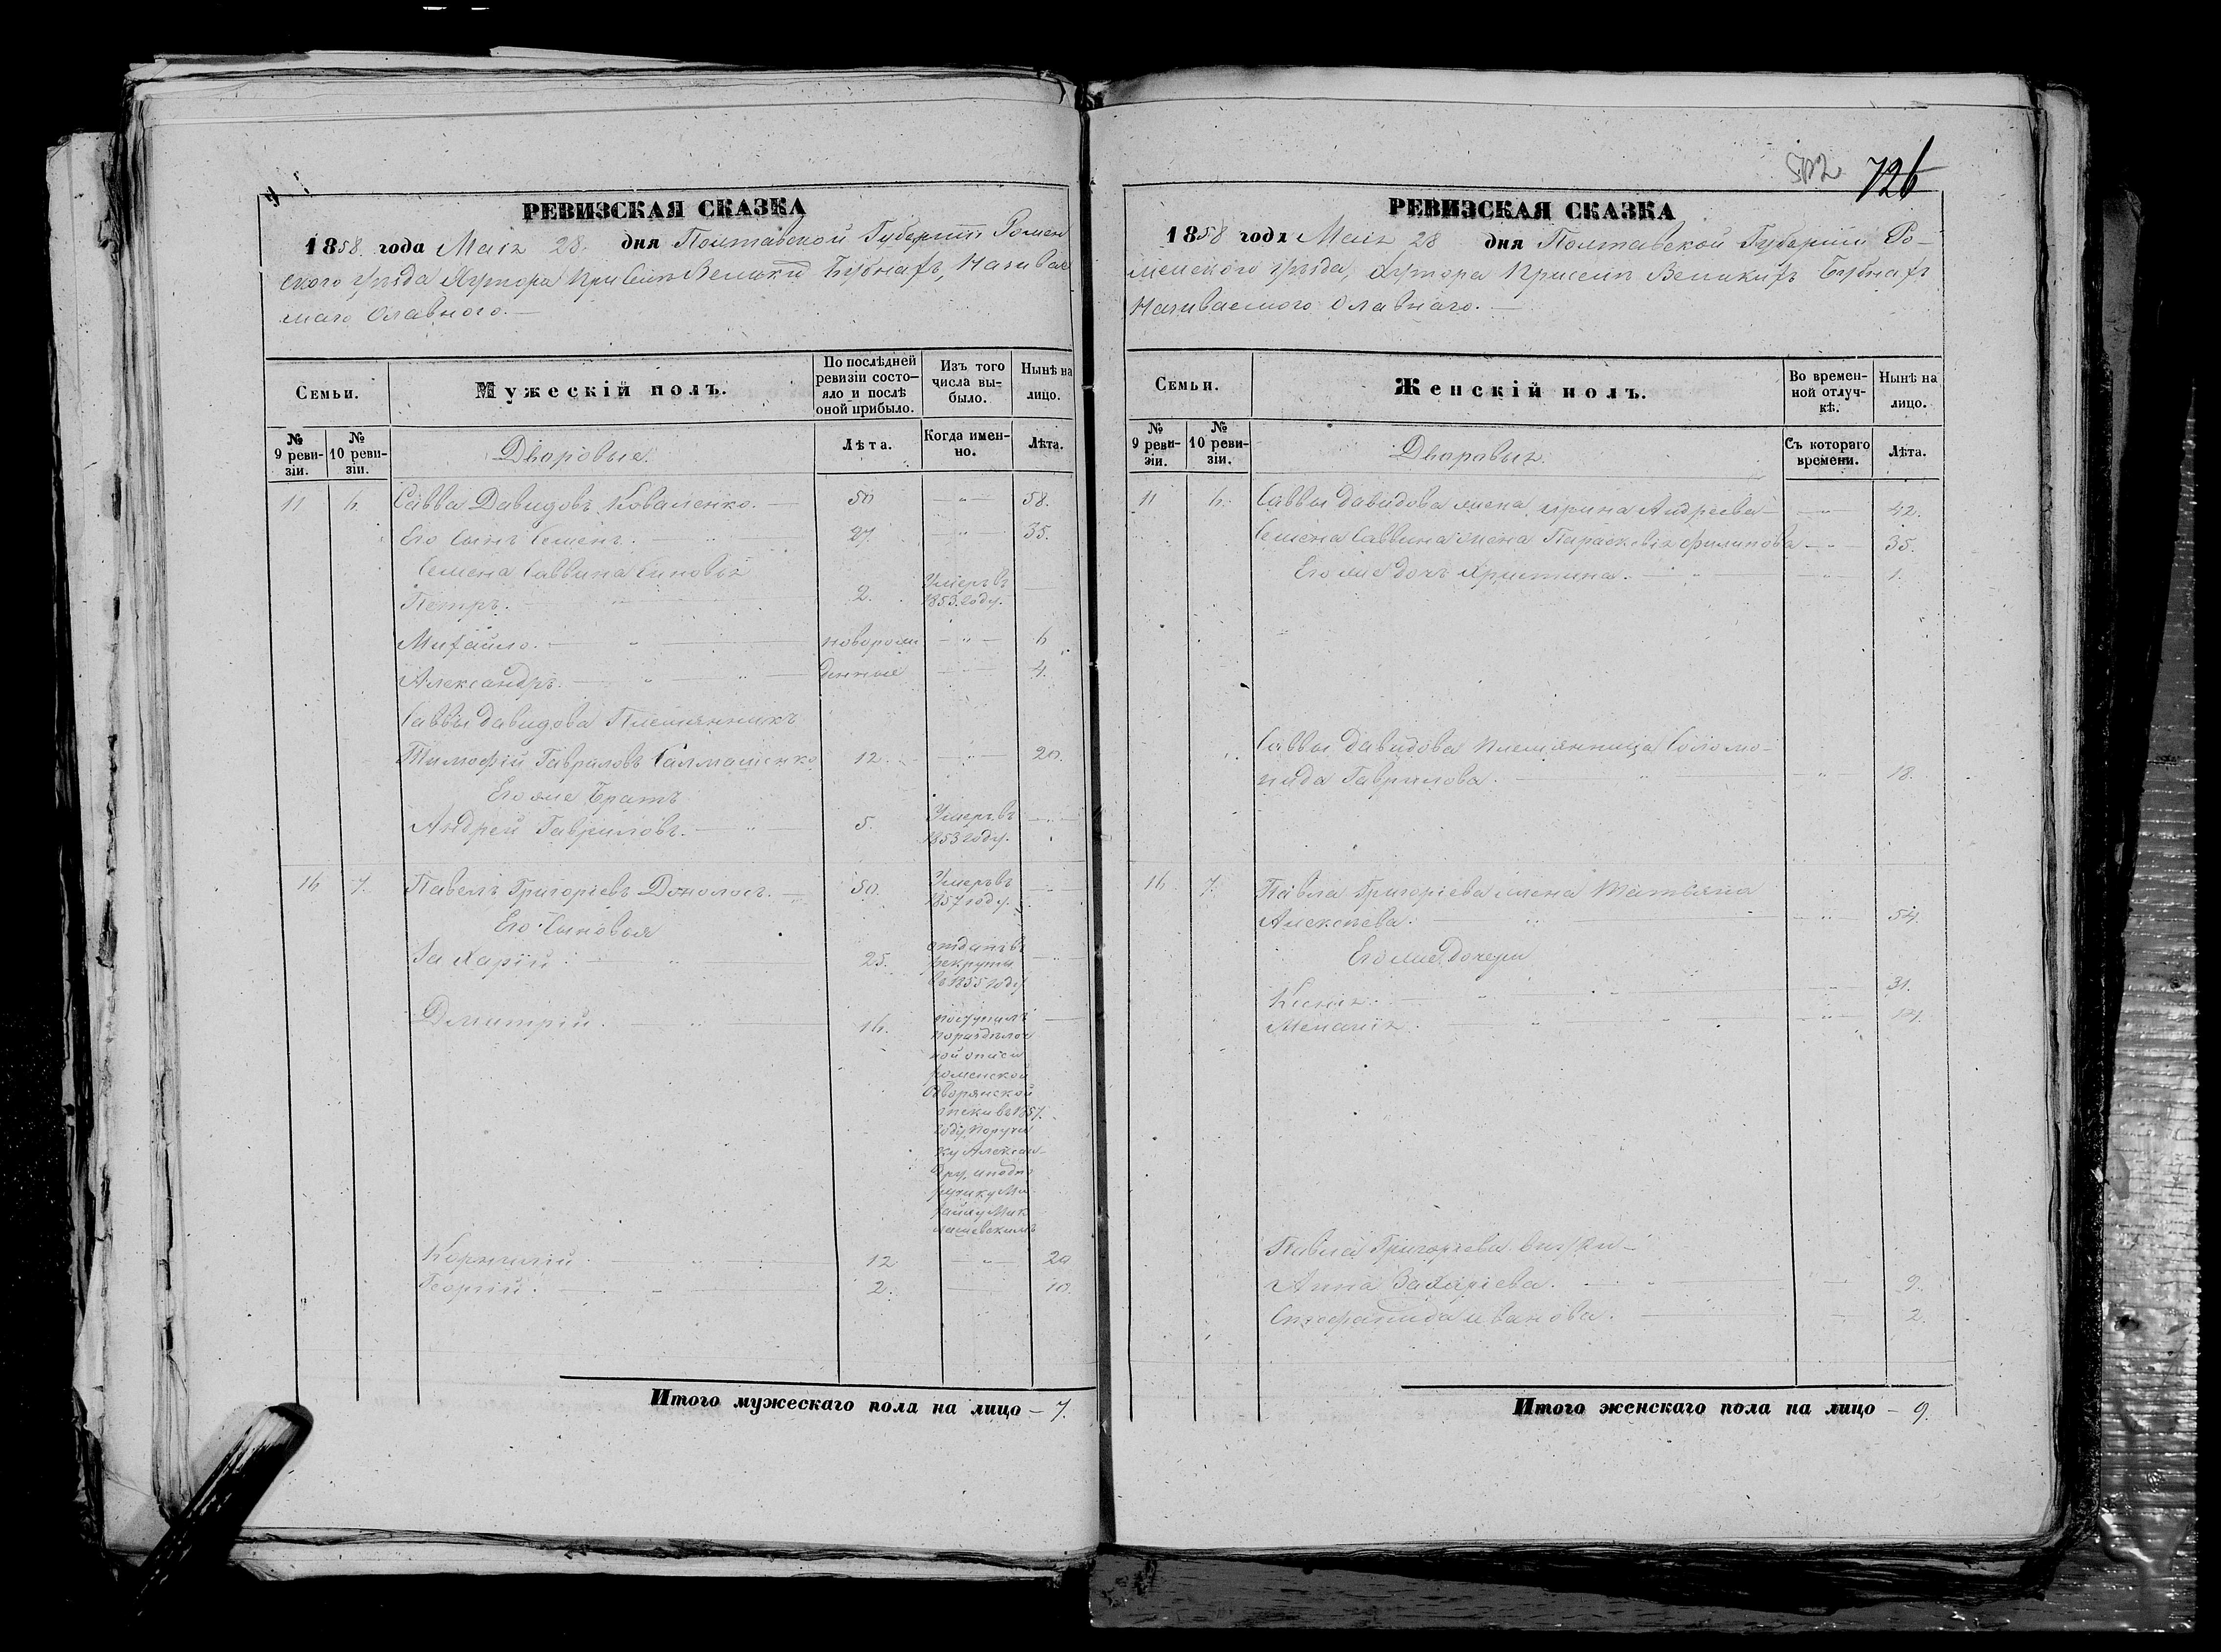 РЕВИЗСКАЯ СКАЗКА
1858 года Маія 28 дня Полтавской Губерніи Ромен
ского уѣзда Хутора при Селѣ Великихъ Бубнахъ, Называе
маго Славного.
Семьи.
Мужескій полъ.
По послѣдней ревизіи состо-яло и послѣ оной прибыло.
Изъ того числа вы-было.
Нынѣ на лицо.
№ 9 реви-зіи.
№ 10 реви-зіи.
Дворовые.
Лѣта.
Когда имен-но.
Лѣта.
11 6 Савва Давидовъ Коваленко. 50 — " — 58.
Его Сынъ Семенъ. 27 — " — 35.
Семена Саввина Сыновья
Петръ. 2. Умеръ въ 1853 году.
Михайло. новорож — " — 6
Александръ. денные — 4.
Саввы Давидова Племянникъ
Тимофій Гавриловъ 12. — " — 20.
Его же Братъ
Андрей Гавриловъ. 5. Умеръ въ 1853 году.
16 7. Павелъ Григоріевъ 50. Умеръ въ 1857 году.
Его Сыновья
Захарій 25. отданъ въ рекруты въ 1855 году
Дмитрій. 16. поступилъ
по раздѣльной описи
роменской
дворянской
опеки въ 1857.
году, Поручи
ку Алексан-
дру, и подпо
ручику Ми
хайлу Мик
лашевскимъ
Корнилій 12 — " — 20
Георгій. 2. — 10.
Итого мужескаго пола на лицо – 7.
512 726
РЕВИЗСКАЯ СКАЗКА
1858 года Маія 28 дня Полтавской Губерніи Ро-
менского уѣзда, Хутора при селѣ Великихъ Бубнахъ
Называемого Славнаго. —
Семьи.
Женскій полъ.
Во времен-ной отлуч-кѣ.
Нынѣ на лицо.
№ 9 реви-зіи.
№ 10 реви-зіи.
Дворовыя.
Съ котораго времени.
Лѣта.
11 6. Саввы Давидова жена Ирина Андреева — " — 42.
Семена Саввина жена Параскевія Филипова — " — 35.
Его же дочь Христина. — " — 1.
Саввы Давидова племянница Соломо-
нида Гаврилова. — " — 18.
16 7. Павла Григоріева жена Татьяна
Алексѣева. — " — 54.
Его же Дочери
Ксенія. — " — 31.
Меланія. — " —
Павла Григоріева внучки —
Анна Захаріева. — 9.
Иванова. — 2.
Итого женскаго пола на лицо – 9.